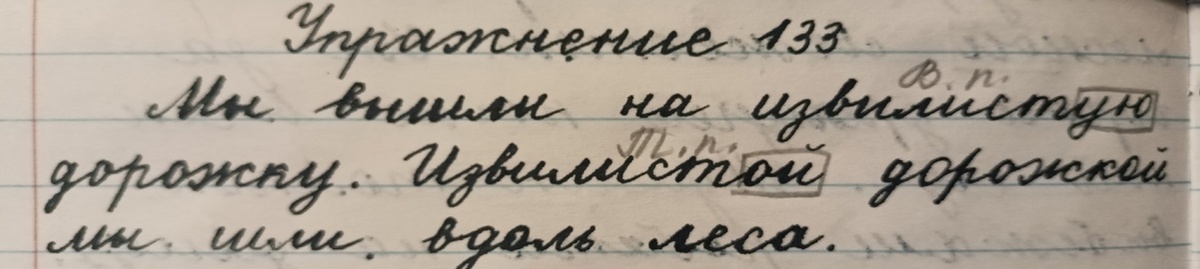 Упражнение 133
В. п.
Мы вышли на извилистую
Т. п.
дорожку. Извилистой дорожкой
мы шли вдоль леса.